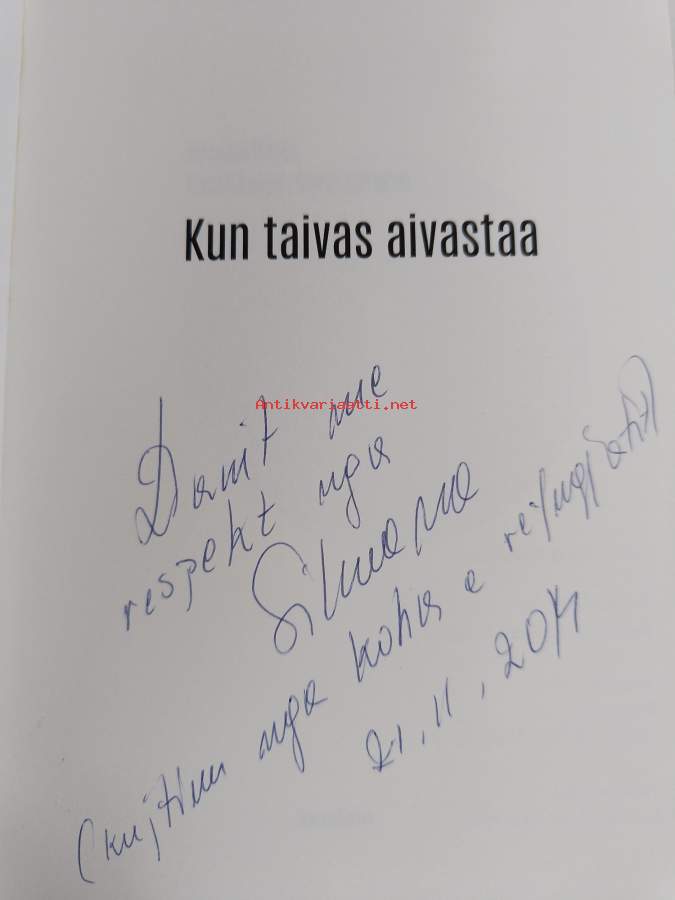 Kun taivas aivastaa
Antikvariaatti.net
Danit me
respekt nga
Silvana
(kujtim nga koha e refugjatit)
21.11.2014